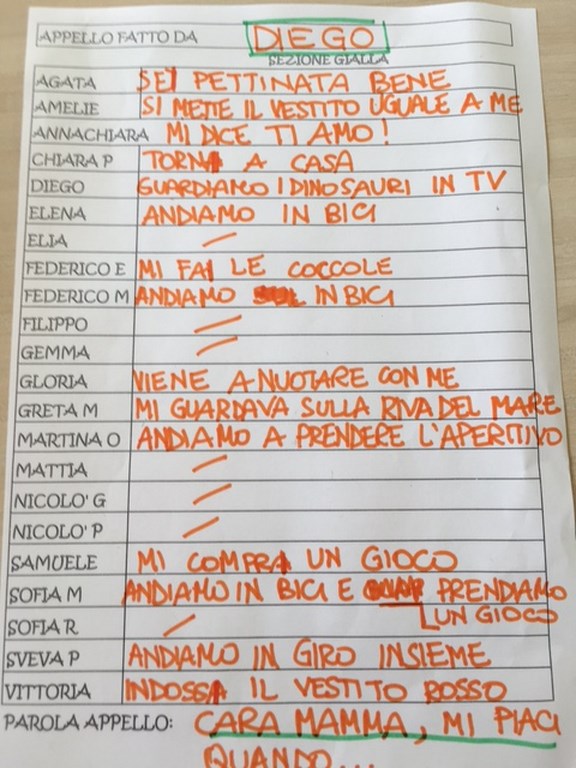 APPELLO FATTO DA DIEGO
SEZIONE GIALLA
AGATA SEI PETTINATA BENE
AMELIE SI METTE IL VESTITO UGUALE A ME
ANNACHIARA MI DICE TI AMO!
CHIARA P TORNA A CASA
DIEGO GUARDIAMO I DINOSAURI IN TV
ELENA ANDIAMO IN BICI
ELIA /
FEDERICO E MI FAI LE COCCOLE
FEDERICO M ANDIAMO IN BICI
FILIPPO /
GEMMA /
GLORIA VIENE A NUOTARE CON ME
GRETA M MI GUARDAVA SULLA RIVA DEL MARE
MARTINA O ANDIAMO A PRENDERE L'APERITIVO
MATTIA /
NICOLO' G /
NICOLO' P /
SAMUELE MI COMPRA UN GIOCO
SOFIA M ANDIAMO IN BICI E PRENDIAMO
UN GIOCO
SOFIA R /
SVEVA P ANDIAMO IN GIRO INSIEME
VITTORIA INDOSSA IL VESTITO ROSSO
PAROLA APPELLO: CARA MAMMA, MI PIACI
QUANDO...